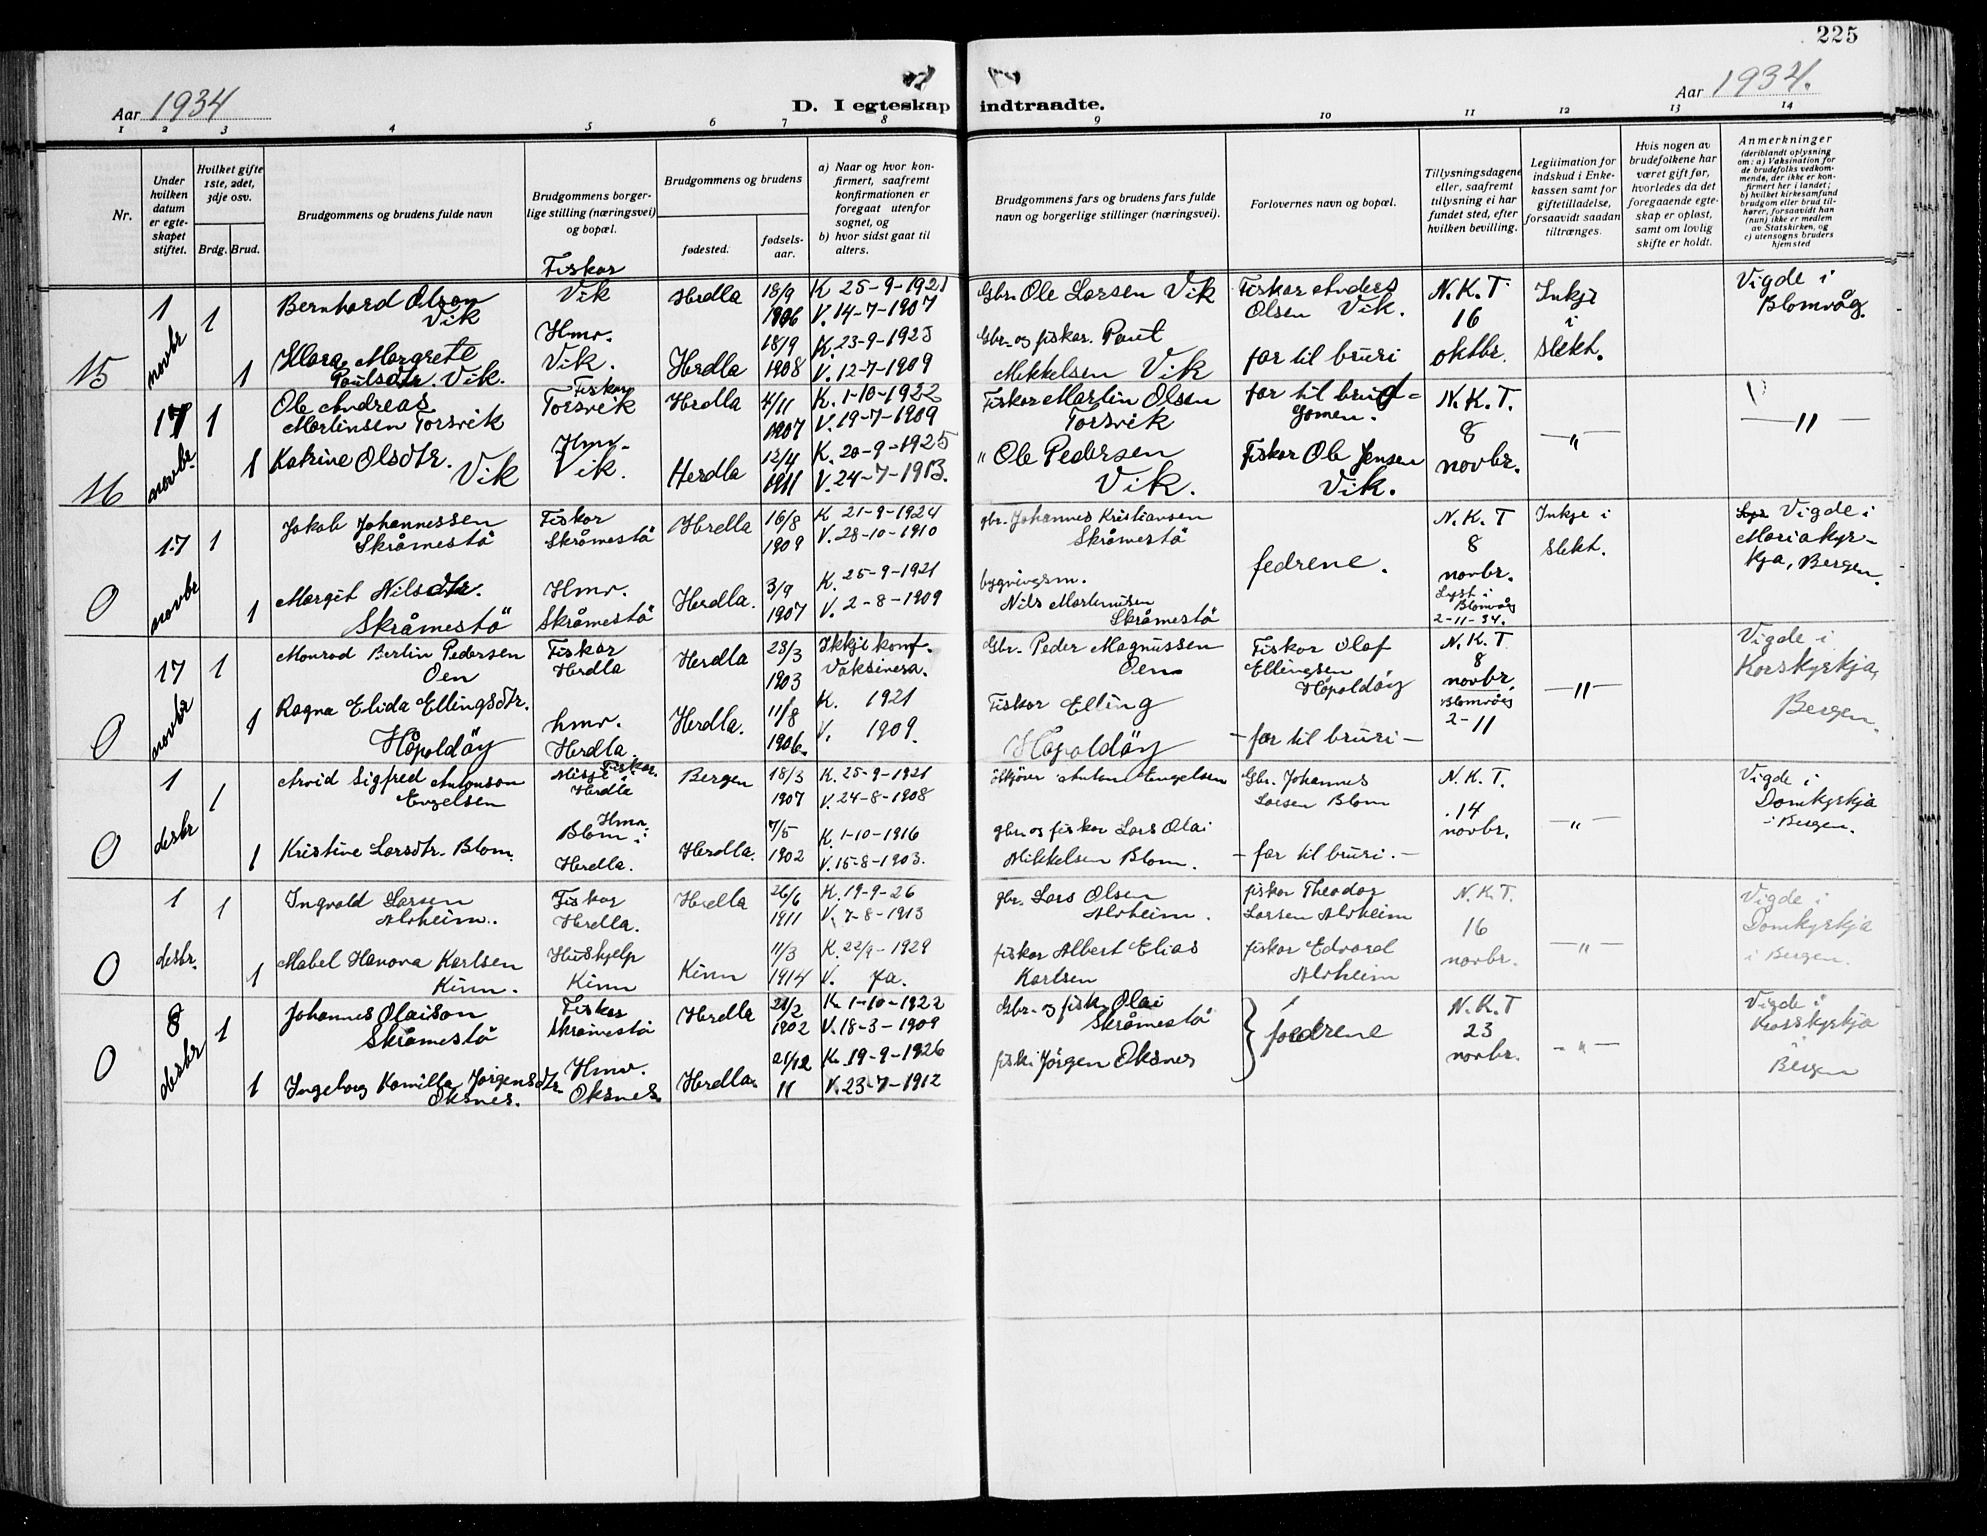 225
Aar 1934
D. I egteskap indtraadte.
Aar 1934.
1 2 3 4 5 6 7 8 9 10 11 12 13 14
Nr.
Under hvilken datum er egteskapet stiftet.
Hvilket gifte 1ste, 2det, 3dje osv.
Brdg. Brud.
Brudgommens og brudens fulde navn
Brudgommens borgerlige stilling (næringsvei) og bopæl.
Brudgommens og brudens
fødested.
fødselsaar.
a) Naar og hvor konfirmert, saafremt konfirmationen er foregaat utenfor sognet, og
b) hvor sidst gaat til alters.
Brudgommens fars og brudens fars fulde navn og borgerlige stillinger (næringsvei).
Forlovernes navn og bopæl.
Tillysningsdagene eller, saafremt tillysning ei har fundet sted, efter hvilken bevilling.
Legitimation for indskud i Enkekassen samt for giftetilladelse, forsaavidt saadan tiltrænges.
Hvis nogen av brudefolkene har været gift før, hvorledes da det foregaaende egteskap er opløst, samt om lovlig skifte er holdt.
Anmerkninger
(deriblandt oplysning om: a) Vaksination for de brudefolks vedkommende, der ikke er konfirmert her i landet; b) hvilket kirkesamfund brudgom eller brud tilhører, forsaavidt han (hun) ikke er medlem av Statskirken, og c) utensogns bruders hjemsted
15
1 novbr
1
Bernhard Olson Vik
Fiskar Vik
Herdla
18/9 1906
K 25-9-1921
V. 14-7-1907
Gbr. Ole Larsen Vik
Fiskar Anders Olsen Vik.
N.K.T. 16 oktbr.
Inkje i slekt.
Vigde i Blomvåg.
1
Klara Margrete Paulsdtr. Vik.
Hmv. Vik.
Herdla
18/9 1908
K. 23-9-1923
V. 12-7-1909
Gbr. og fiskar. Paul Mikkelsen Vik
far til bruri
16
17 novbr.
1
Ole Andreas Martinsen Torsvik
Fiskar Torsvik
Herdla
4/11 1907
K. 1-10-1922
V. 19-7-1909
Fiskar Martin Olsen Torsvik
far til brudgomen.
N.K.T. 8 novbr.
— " —
— " —
1
Katrine Olsdtr. Vik
Hmv. Vik.
Herdla
12/4 1911
K. 20-9-1925
V. 24-7-1913.
" Ole Pedersen Vik.
Fiskar Ole Jensen Vik.
0
17 novbr
1
Jakob Johannessen Skråmestö
Fiskar Skråmestö
Herdla
16/8 1909
K. 21-9-1924
V. 28-10-1910
gbr. Johannes Kristiansen Skråmestö
fedrene.
N.K.T 8 novbr.
Lyst i Blomvåg 2-11-34.
Inkje i slekt.
Vigde i Mariakyrkja, Bergen.
1
Margit Nilsdtr. Skråmestö
Hmv. Skråmestö
Herdla.
3/9 1907
K. 25-9-1921
V. 2-8-1909
bygningsm. Nils Martinusen Skråmestö
0
17 novbr
1
Monrad Berlin Pedersen Oen
Fiskar Herdla
Herdla
23/3 1903
Ikkje konf. Vaksinera.
Gbr. Peder Magnussen Oen
Fiskar Olaf Ellingsen Håpoldöy
N.K.T. 8 novbr.
Blomvåg 2-11
— " —
Vigde i Korskyrkja, Bergen.
1
Ragna Elida Ellingsdtr. Håpoldöy
hmv. Herdla.
Herdla.
11/8 1906.
K. 1921
V. 1909.
Fiskar Elling Håpoldöy
— far til bruri —
0
1 desbr
1
Arvid Sigfred Antonson Engelsen
Fiskar. Misje i Herdla
Bergen
18/3 1907
K. 25-9-1921
V. 24-8-1908
Anton Engelsen
Gbr. Johannes Larsen Blom
N.K.T. 14 novbr.
— " —
Vigde i Domkyrkja i Bergen.
1
Kristine Larsdtr. Blom.
Hmv. Blom i Herdla.
Herdla.
7/5 1902
K. 1-10-1916
V. 15-8-1903.
gbr. og fiskar Lars Olai Mikkelsen Blom.
— far til bruri. —
0
1 desbr.
1
Ingvald Larsen Alvheim.
Fiskar Herdla.
Herdla
26/6 1911
K. 19-9-26
V. 7-8-1913
gbr. Lars Olsen Alvheim.
fiskar Theodor Larsen Alvheim
N.K.T. 16 novbr.
— " —
Vigde i Domkyrkja i Bergen.
1
Mabel Hanora Karlsen Kinn.
Hushjelp Kinn
Kinn
11/3 1914
K. 22/9-1929
V. Ja.
fiskar Albert Elias Karlsen
fiskar Edvard Alvheim
0
8 desbr
1
Johannes Olaison Skråmestö
Fiskar Skråmestö
Herdla
21/2 1902
K. 1-10-1922
V. 18-3-1909
Gbr. og fisk. Olai Skråmestö
fedrene
N.K.T 23 novbr.
— " —
Vigde i Korskyrkja Bergen
1
Ingeborg Kamilla Jörgensdtr. Oksnes.
Hmv. Oksnes.
Herdla.
21/12 11
K. 19-9-1926
V. 23-7-1912
fisk. Jörgen Oksnes